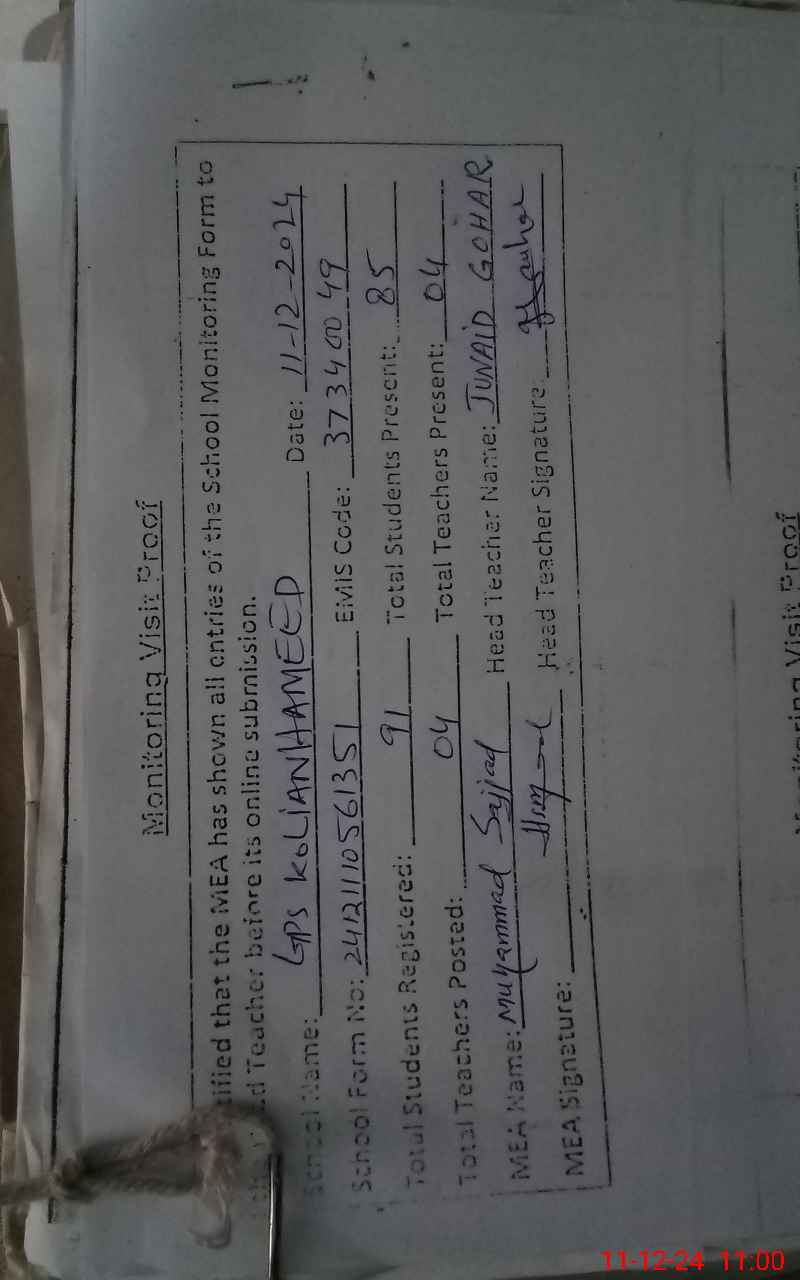 Monitoring Visit Proof
tified that the MEA has shown all entries of the School Monitoring Form to
the Head Teacher before its online submission.
School Name: GPS KOLIAN HAMEED Date: 11-12-2024
School Form No: 241211105561351 EMIS Code: 37340049
Total Students Registered: 91 Total Students Present: 85
Total Teachers Posted: 04 Total Teachers Present: 04
MEA Name: Muhammad Sajjad Head Teacher Name: JUNAID GOHAR
MEA Signature: Head Teacher Signature:
Monitoring Visit Proof
11-12-24 11:00